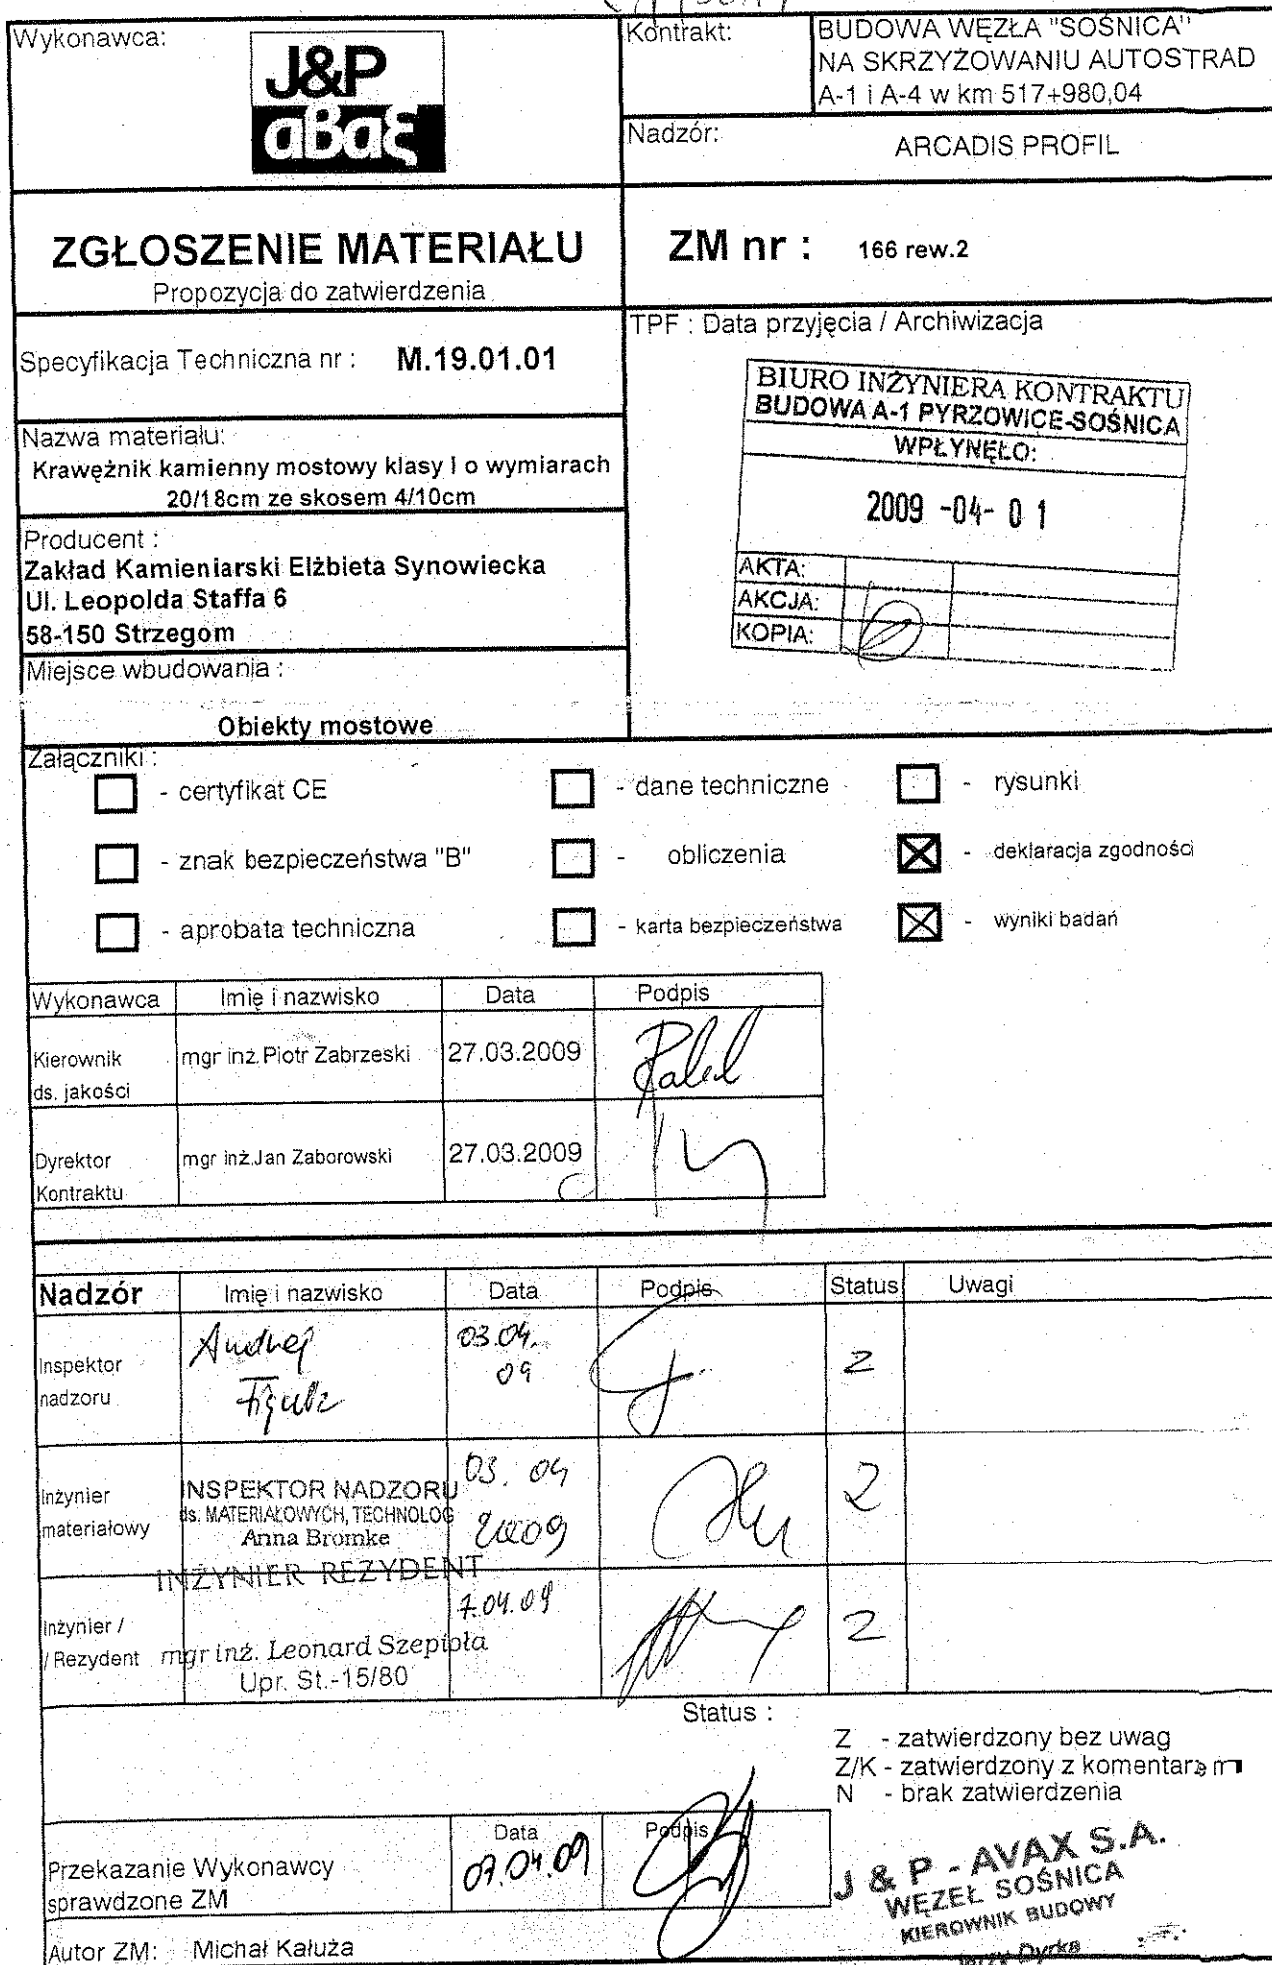 Wykonawca:
J&P
aBaξ
Kontrakt:
BUDOWA WĘZŁA "SOŚNICA"
NA SKRZYŻOWANIU AUTOSTRAD
A-1 i A-4 w km 517+980,04
Nadzór:
ARCADIS PROFIL
ZGŁOSZENIE MATERIAŁU
Propozycja do zatwierdzenia
ZM nr : 166 rew.2
Specyfikacja Techniczna nr : M.19.01.01
TPF : Data przyjęcia / Archiwizacja
BIURO INŻYNIERA KONTRAKTU
BUDOWA A-1 PYRZOWICE-SOŚNICA
WPŁYNĘŁO:
2009 -04- 0 1
AKTA:
AKCJA:
KOPIA:
Nazwa materiału:
Krawężnik kamienny mostowy klasy I o wymiarach
20/18cm ze skosem 4/10cm
Producent :
Zakład Kamieniarski Elżbieta Synowiecka
Ul. Leopolda Staffa 6
58-150 Strzegom
Miejsce wbudowania :
Obiekty mostowe
Załączniki :
- certyfikat CE - dane techniczne - rysunki
- znak bezpieczeństwa "B" - obliczenia - deklaracja zgodności
- aprobata techniczna - karta bezpieczeństwa - wyniki badań
Wykonawca Imię i nazwisko Data Podpis
Kierownik
ds. jakości
mgr inż.Piotr Zabrzeski 27.03.2009
Dyrektor
Kontraktu
mgr inż.Jan Zaborowski 27.03.2009
Nadzór Imię i nazwisko Data Podpis Status Uwagi
Inspektor
nadzoru
Andrzej
03.04.
09
Z
Inżynier
materiałowy
INSPEKTOR NADZORU
ds. MATERIAŁOWYCH, TECHNOLOG
Anna Bromke
03. 04
2009
Z
INŻYNIER REZYDENT
Inżynier /
/ Rezydent
mgr inż. Leonard Szepioła
Upr. St.-15/80
7.04.09
Z
Status :
Z - zatwierdzony bez uwag
Z/K - zatwierdzony z komentarzem
N - brak zatwierdzenia
Przekazanie Wykonawcy
sprawdzone ZM
Data
07.04.09
Podpis
J & P - AVAX S.A.
WĘZEŁ SOŚNICA
KIEROWNIK BUDOWY
Dyrka
Autor ZM: Michał Kałuża